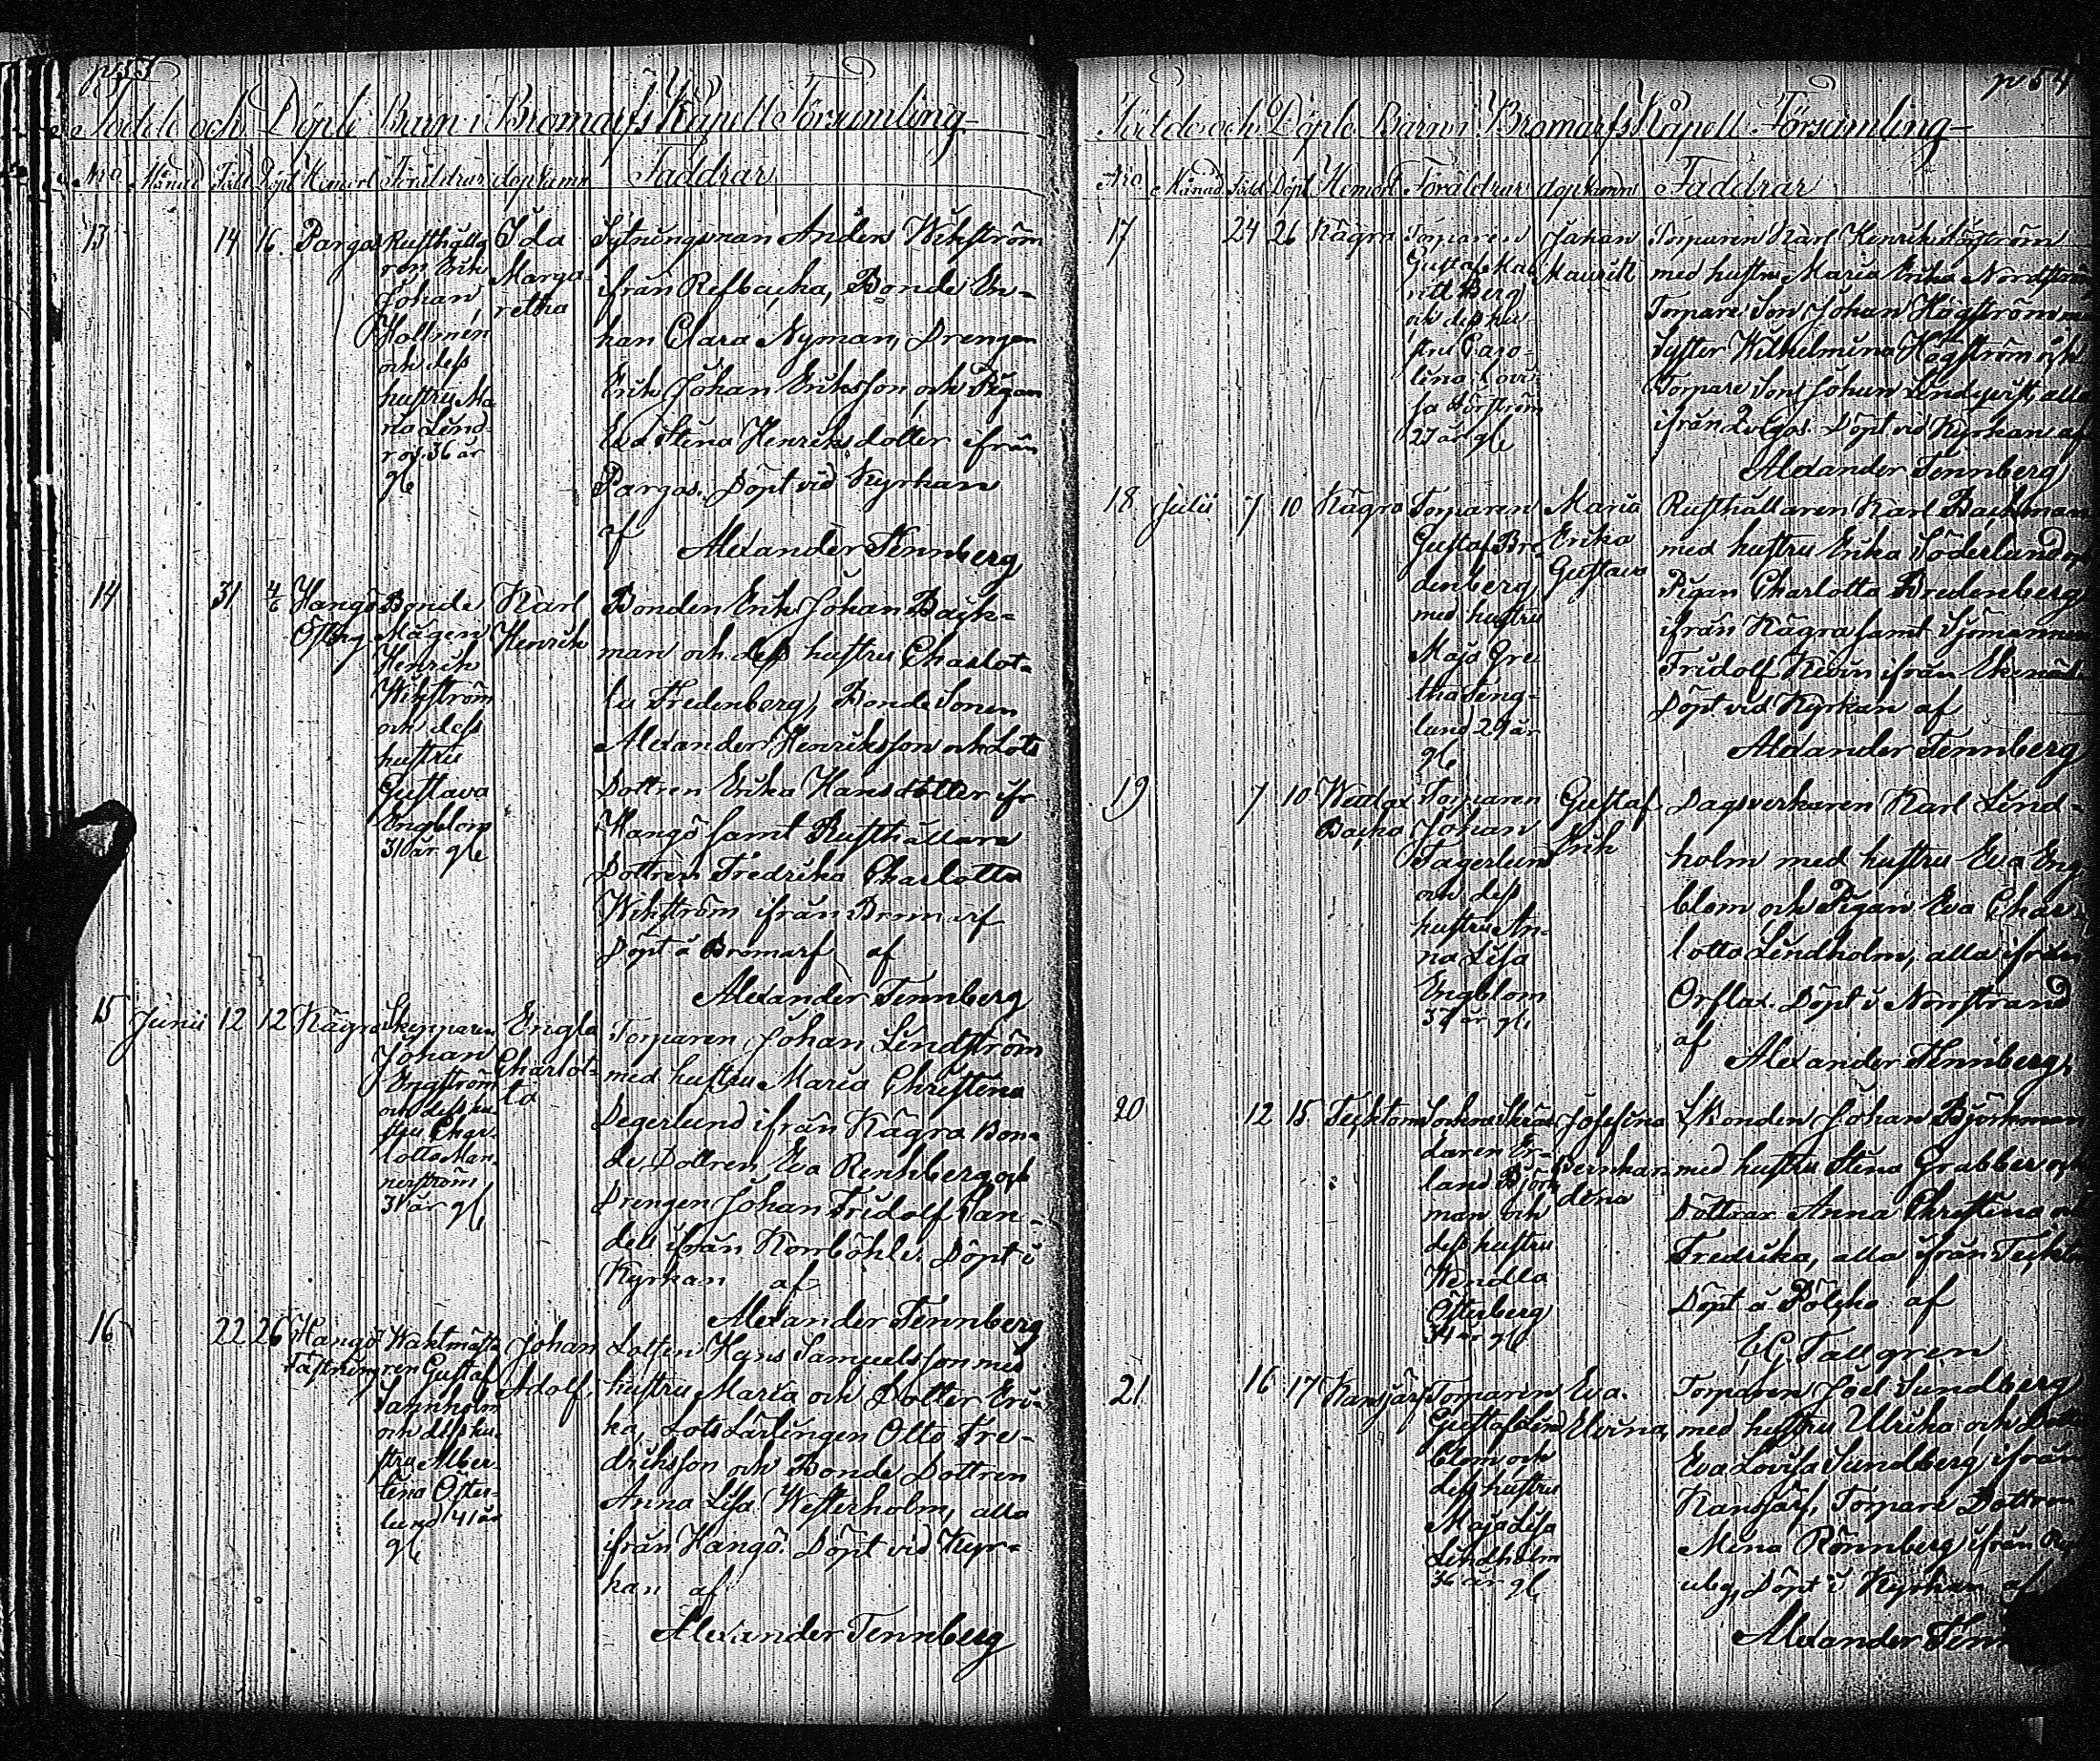 p 53
Födde och Döpte Barn i Bromarfs Kapell Församling
Nro Månad Född Döpt Hemort Föräldrar dopnamn Faddrar
13 14 16 Pargas Rusthålla
ren Erik
Johan
Hallmén
och dess
hustru Ma
ria Lind
roos 36 år
gl
Ida
Marga
retha
Sytningsman Anders Wikström
ifrån Refbacka, Bonde En-
kan Clara Nyman, Drengen
Erik Johan Eriksson och Pigan
Eva Stina Henriksdotter ifrån
Pargas. Döpt vid Kyrkan
af
Alexander Tennberg
14 31 4/6 Hangö
Öfby
Bonde
Mågen
Henrik
Wikström
och dess
hustru
Gustava
Engblom
31 år gl
Karl
Henrik
Bonden Erik Johan Back-
man och dess hustru Charlot-
ta Fredenberg, Bonde Sonen
Alexander Henriksson och Lots
Dottren Erika Hansdotter ifr
Hangö samt Rusthållare
Dottren Fredrika Charlotta
Wikström ifrån
Döpt å Bromarf af
Alexander Tennberg
15 Junii 12 12 Kägra Skepparen
Johan
Engström
och dess hu-
stru Char-
lotta Man-
nerström
31 år gl
Engla
Charlot-
ta
Torparen Johan Lindström
med hustru Maria Christina
Degerlund ifrån Kägra Bon-
de Dottren Eva Renkberg och
Drengen Johan Fridolf San-
dell ifrån Korsböhle. Döpt i
Kyrkan af
Alexander Tennberg
16 22 26 Hangö
Fästning
Waktmästa
ren Gustaf
Sannholm
och dess hu-
stru Alber-
tina Öster-
lund 41 år
gl
Johan
Adolf
Lotsen Hans Samuelsson med
hustru Maria och Dotter Eri-
ka, Lots Lärlingen Otto Fre-
driksson och Bonde Dottren
Anna Lisa Westerholm, alla
ifrån Hangö. Döpt vid Kyr-
kan af
Alexander Tennberg
p 54
Födde och Döpte Barn i Bromarfs Kapell Församling
Nro Månad Född Döpt Hemort Föräldrar dopnamn Faddrar
17 24 26 Kägra Torparen
Gustaf Mau
ritz Berg
och dess hu
stru Caro-
lina Lovi-
sa
27 år gl
Johan
Mauritz
Torparen Karl Henrik Högström
med hustru Maria Erika Nordström
Torpare Son Johan Högström med
Syster Wilhelmina Högström och
Torpare Son Johan Lindqvist, alla
ifrån Döpt vid Kyrkan af
Alexander Tennberg
18 Julii 7 10 Kägra Torparen
Gustaf Bre
denberg
med hustru
Maja Gre
tha Teng-
lund 29 år
gl
Maria
Erika
Gustava
Rusthållaren Karl Backman
med hustru Erika Söderlund och
Pigan Charlotta Bredenberg
ifrån Kägra samt Sjömannen
Fridolf ifrån Ekenäs
Döpt vid Kyrkan af
Alexander Tennberg
19 7 10 Wättlax
Backa
Torparen
Johan
Fagerlund
och dess
hustru An-
na Lisa
Engblom
37 år gl
Gustaf
Erik
Dagsverkaren Karl Lind-
holm med hustru Eva Eng
blom och Pigan Eva Char-
lotta Lindholm, alla ifrån
Orslax. Döpt i Norrstrand
af
Alexander Tennberg
20 12 15 Täcktom Sockneskräd
daren Er-
land Björk
man och
dess hustru
Wendla
Österberg
34 år gl
Josefina
Bernhar-
dina
Bonden Johan Björkman
med hustru Stina Grabber och
Döttrar Anna Christina o
Fredrika, alla ifrån Täckto
Döpt å af
E G Tallgren
21 16 17 Kansjärf Torparen
Gustaf Lind
blom och
dess hustru
Maja Lisa
Lindholm
36 år gl
Eva
Elvina
Torparen Joel Sundberg
med hustru Ulrika och Dotter
Eva Lovisa Sundberg ifrån
Kansjärf, Torpare Dottren
Mina Rönnberg ifrån
Döpt i Kyrkan af
Alexander Tenn